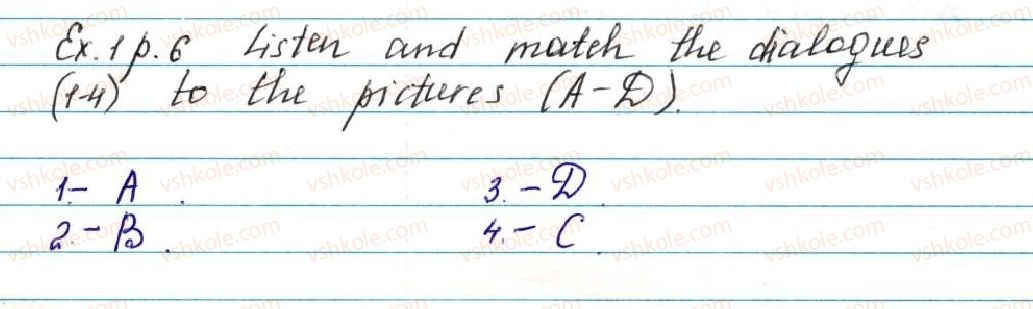 Ex. 1 p. 6 Listen and match the dialogues
(1-4) to the pictures (A-D).
1.- A. 3.-D.
2.- B. 4.- C.